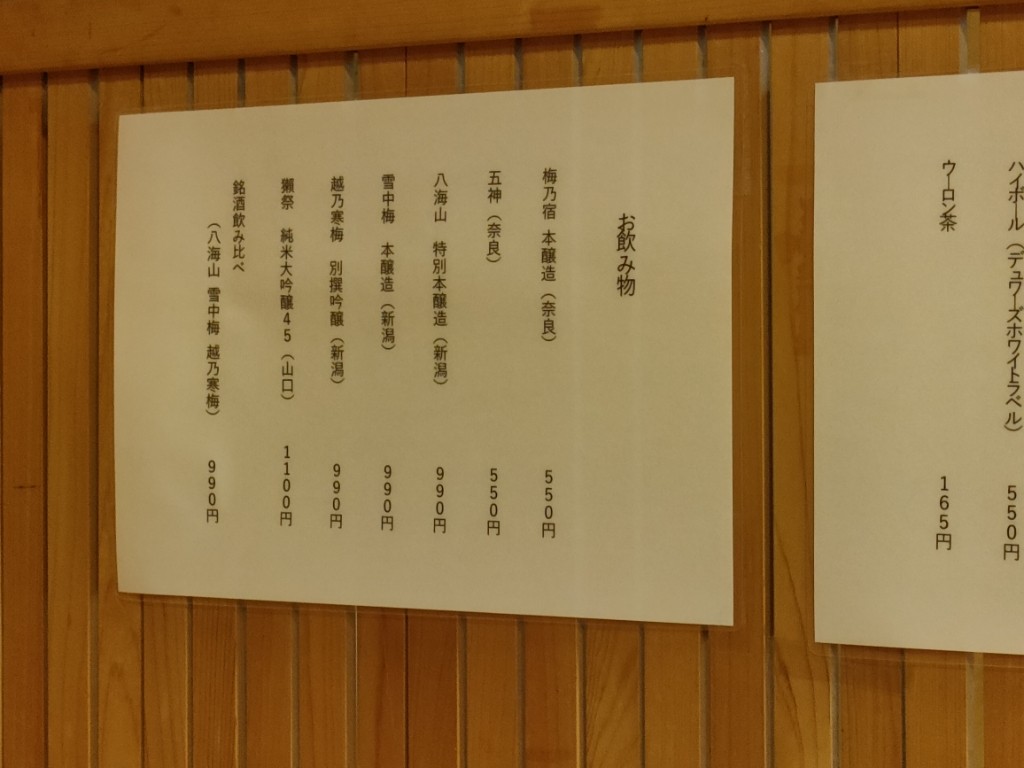 ハイボール（デュワーズホワイトラベル） 550円
ウーロン茶 165円
お飲み物
梅乃宿 本醸造（奈良） 550円
五神（奈良） 550円
八海山 特別本醸造（新潟） 990円
雪中梅 本醸造（新潟） 990円
越乃寒梅 別撰吟醸（新潟） 990円
獺祭 純米大吟醸45（山口） 1100円
銘酒飲み比べ
（八海山 雪中梅 越乃寒梅） 990円